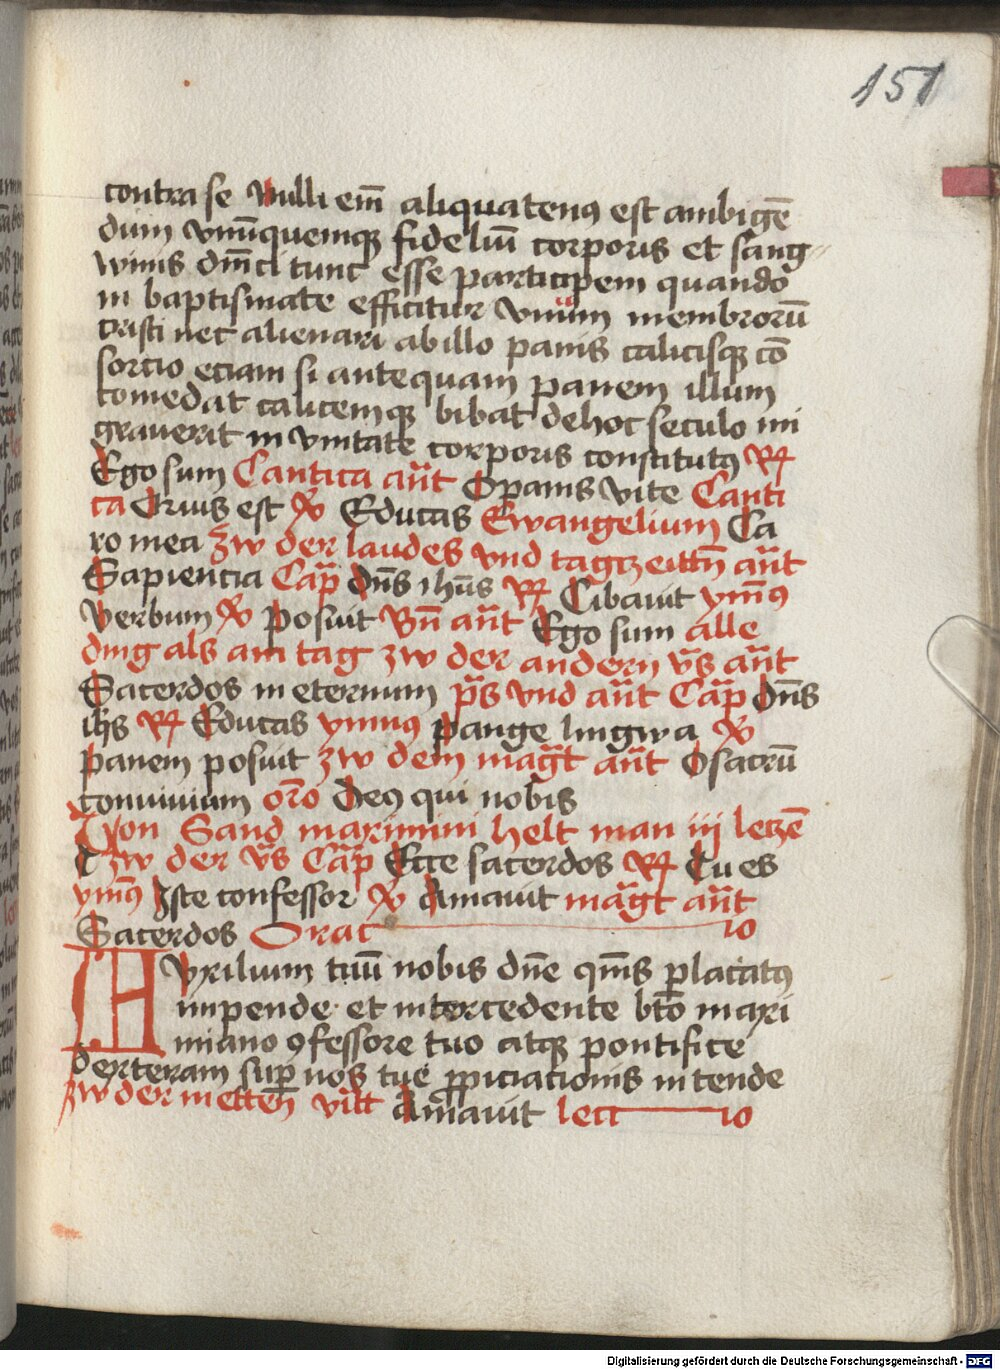 151
contra se Nulli em̄ aliquatenꝯ est ambigē
dum vnūquemqꝫ fideliū corporis et sang
winis dn̄ici tunc esse participem quando
in baptismate efficitur vnum membrorū
cristi nec alienari ab illo panis calicisqꝫ cō
sorcio eciam si antequam panem illum
comedat calicemqꝫ bibat de hoc seculo mi
grauerit in vnitate corporis constitutꝯ ℟
Ego sum Cantica an̄t O panis vite Canti
ca Cuius est ℣ Educas Ewangelium Ca
ro mea zw der laudes vnd tagzeittn̄ an̄t
Sapiencia Cap̄ dn̄s ihūs ℟ Cibauit ym̄ꝯ
Verbum ℣ Posuit Bn̄ an̄t Ego sum alle
ding als am tag zw der andern v̄s an̄t
Sacerdos in eternum p̄s vnd an̄t Cap̄ dn̄s
ih̄s ℟ Educas ymnꝯ pange lingwa ℣
Panem posuit zw dem maḡt an̄t O sacrū
conuiuium or̄o Deꝯ qui nobis
Von Sand maximini helt man iij leczē
zw der v̄s Cap̄ Ecce sacerdos ℟ Tu es
ym̄ꝯ Iste confessor ℣ Amauit maḡt an̄t
Sacerdos Oratio
Auxilium tuū nobis dn̄e qm̄s placatꝯ
impende et intercedente bt̄o maxi
miano ꝯfessore tuo atqꝫ pontifice
dexteram sup̄ nos tue ꝓpiciacionis intende
zw der metten̄ vitt Amauit lectio
Digitalisierung gefördert durch die Deutsche Forschungsgemeinschaft - DFG